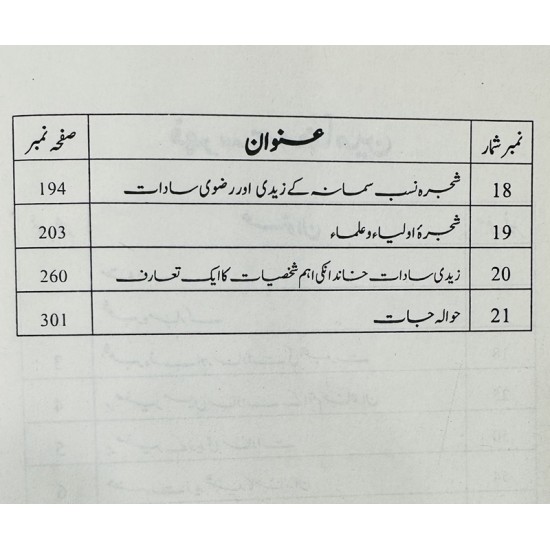 نمبر شمار عنوان صفحہ نمبر
18 شجرہ نسب سمانہ کے زیدی اور رضوی سادات 194
19 شجرۂ اولیاء و علماء 203
20 زیدی سادات خاندانکی اہم شخصیات کا ایک تعارف 260
21 حوالہ جات 301